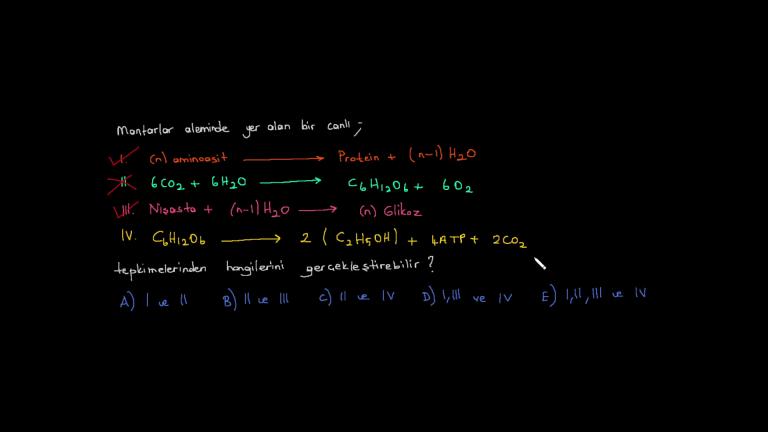 Mantarlar aleminde yer alan bir canlı ;
I. (n) aminoasit → Protein + (n-1) H₂O
II. 6CO₂ + 6H₂O → C₆H₁₂O₆ + 6O₂
III. Nişasta + (n-1) H₂O → (n) Glikoz
IV. C₆H₁₂O₆ → 2 (C₂H₅OH) + 4ATP + 2CO₂
tepkimelerinden hangilerini gerçekleştirebilir ?
A) I ve II B) II ve III C) II ve IV D) I, III ve IV E) I, II, III ve IV